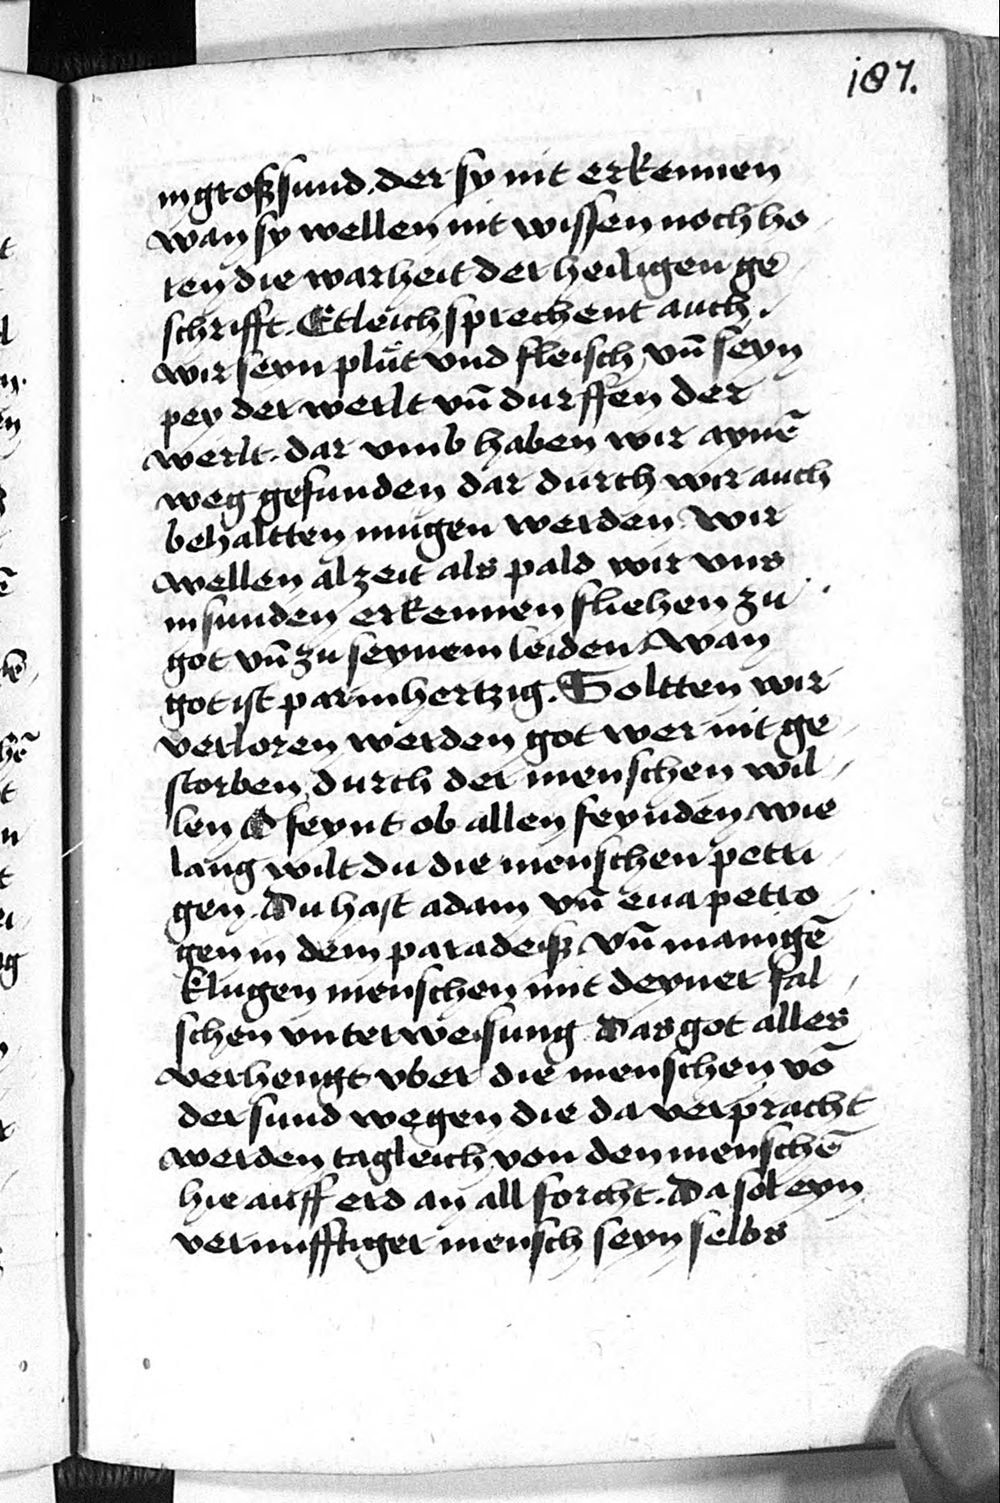 187.
in groß sund. der sy nit erkennen
wan sy wellen nit wissen noch ho
ren die warheit der heiligen ge
schrifft. Etleich sprechent auch.
wir seyn plůt vnd fleisch vn̄ seyn
pey der werlt vn̄ durffen der
werlt. dar vmb haben wir aynē
weg gefunden dar durch wir auch
behaltten mugen werden wir
wellen alzeit als pald wir vns
in sunden erkennen fliehen zu
got vn̄ zu seynem leiden wan
got ist parmhertzig. Soltten wir
verloren werden got wer nit ge
storben durch der menschen wil
len O feynt ob allen feynden wie
lang wilt du die menschen petri
gen. Du hast adam vn̄ eua petro
gen in dem paradeiß vn̄ manigē
klugen menschen mit deyner fal
schen vnterweisung Das got alles
verhengt vber die menschen vō
der sund wegen die da verpracht
werden tagleich von den menschē
hie auff erd an all forcht. Da sol eyn
vernufftiger mensch seyn selbs